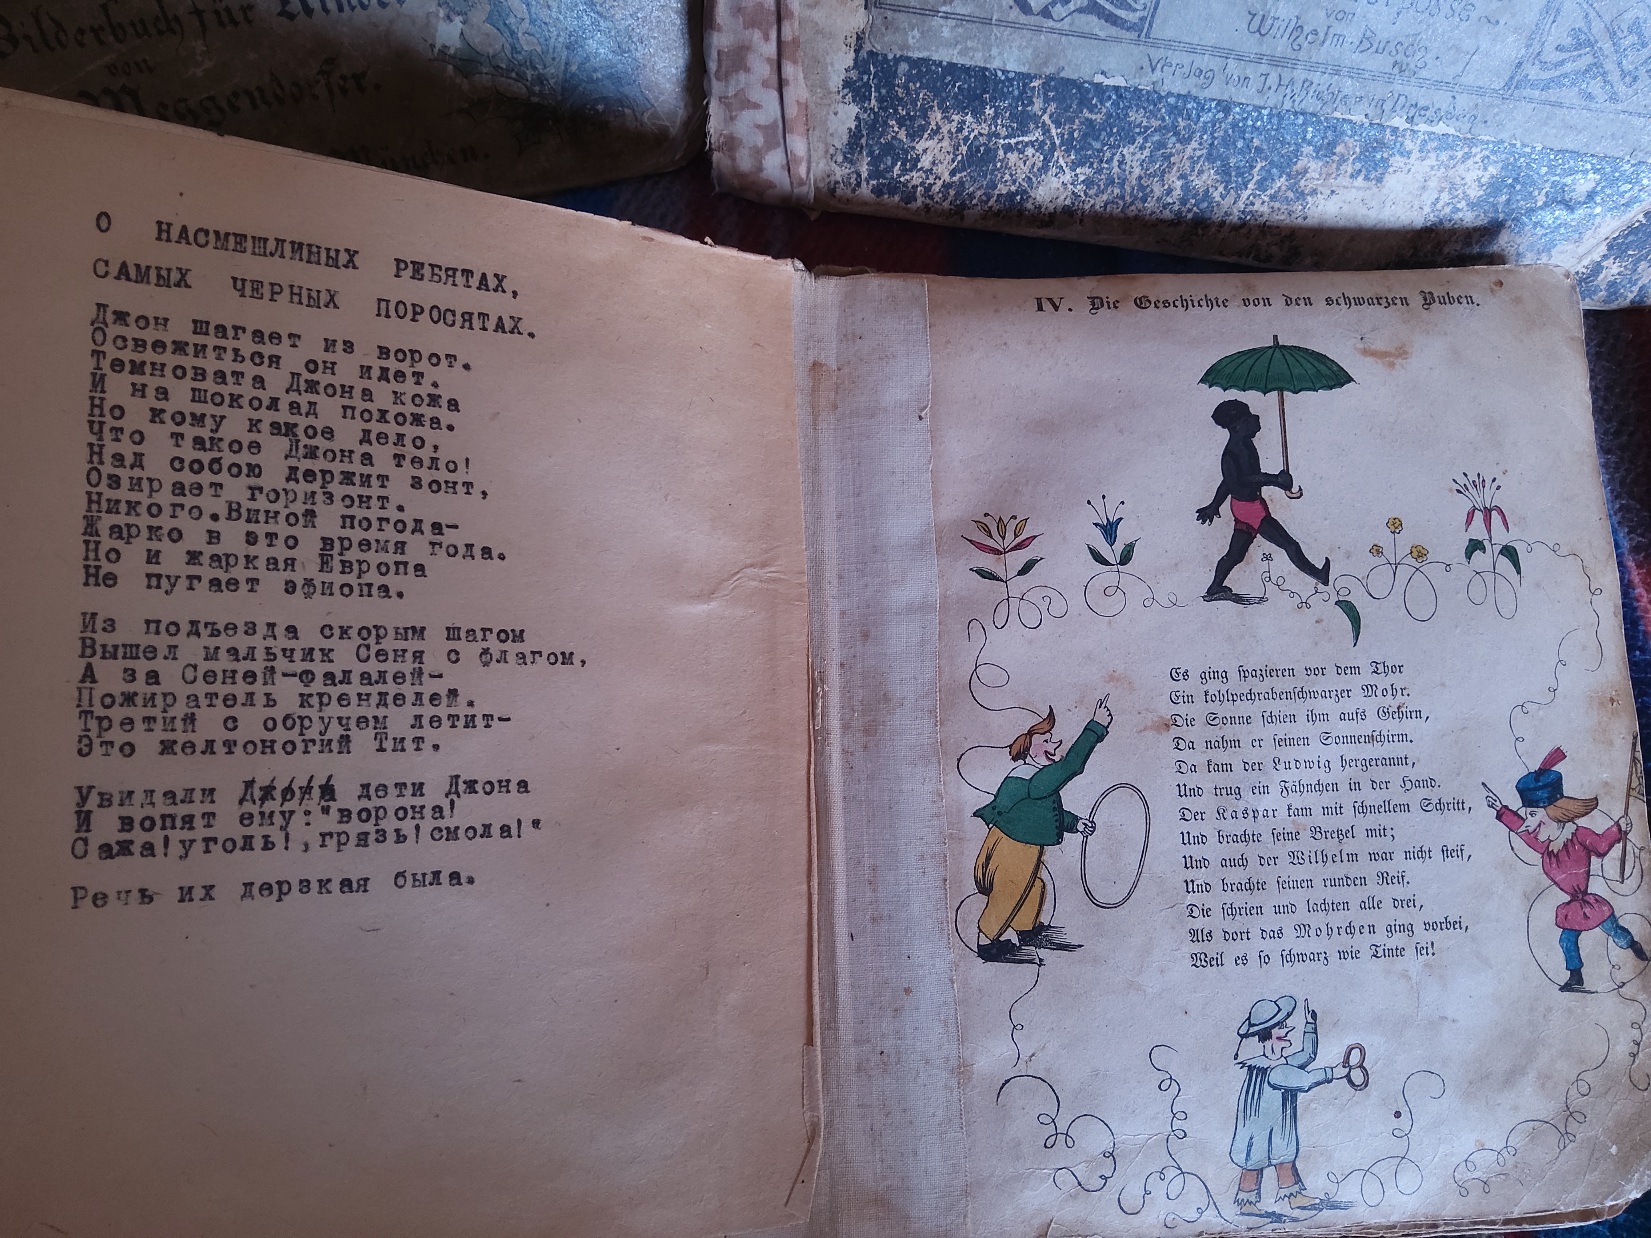 Bilderbuch für Kinder
von
Meggendorfer.
München.
von
Wilhelm Busch.
Verlag von J.H. Richter in Dresden.
О НАСМЕШЛИНЫХ РЕБЯТАХ,
САМЫХ ЧЕРНЫХ ПОРОСЯТАХ.
Джон шагает из ворот.
Освежиться он идет.
Темновата Джона кожа
И на шоколад похожа.
Но кому какое дело,
Что такое Джона тело!
Над собою держит зонт,
Озирает горизонт.
Никого.Виной погода-
Жарко в это время года.
Но и жаркая Европа
Не пугает эфиопа.
Из подъезда скорым шагом
Вышел мальчик Сеня с флагом,
А за Сеней-Фалалей-
Пожиратель кренделей.
Третий с обручем летит-
Это желтоногий Тит.
Увидали Джона дети Джона
И вопят ему:"ворона!
Сажа!уголь!,грязь!смола!"
Речь их дерзкая была.
IV. Die Geschichte von den schwarzen Buben.
Es ging spazieren vor dem Thor
Ein kohlpechrabenschwarzer Mohr.
Die Sonne schien ihm aufs Gehirn,
Da nahm er seinen Sonnenschirm.
Da kam der Ludwig hergerannt,
Und trug ein Fähnchen in der Hand.
Der Kaspar kam mit schnellem Schritt,
Und brachte seine Bretzel mit;
Und auch der Wilhelm war nicht steif,
Und brachte seinen runden Reif.
Die schrien und lachten alle drei,
Als dort das Mohrchen ging vorbei,
Weil es so schwarz wie Tinte sei!